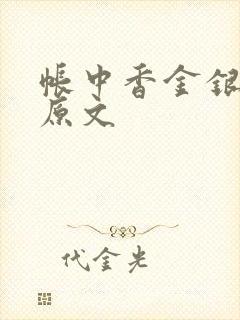 帐中香金银
原文
代金光